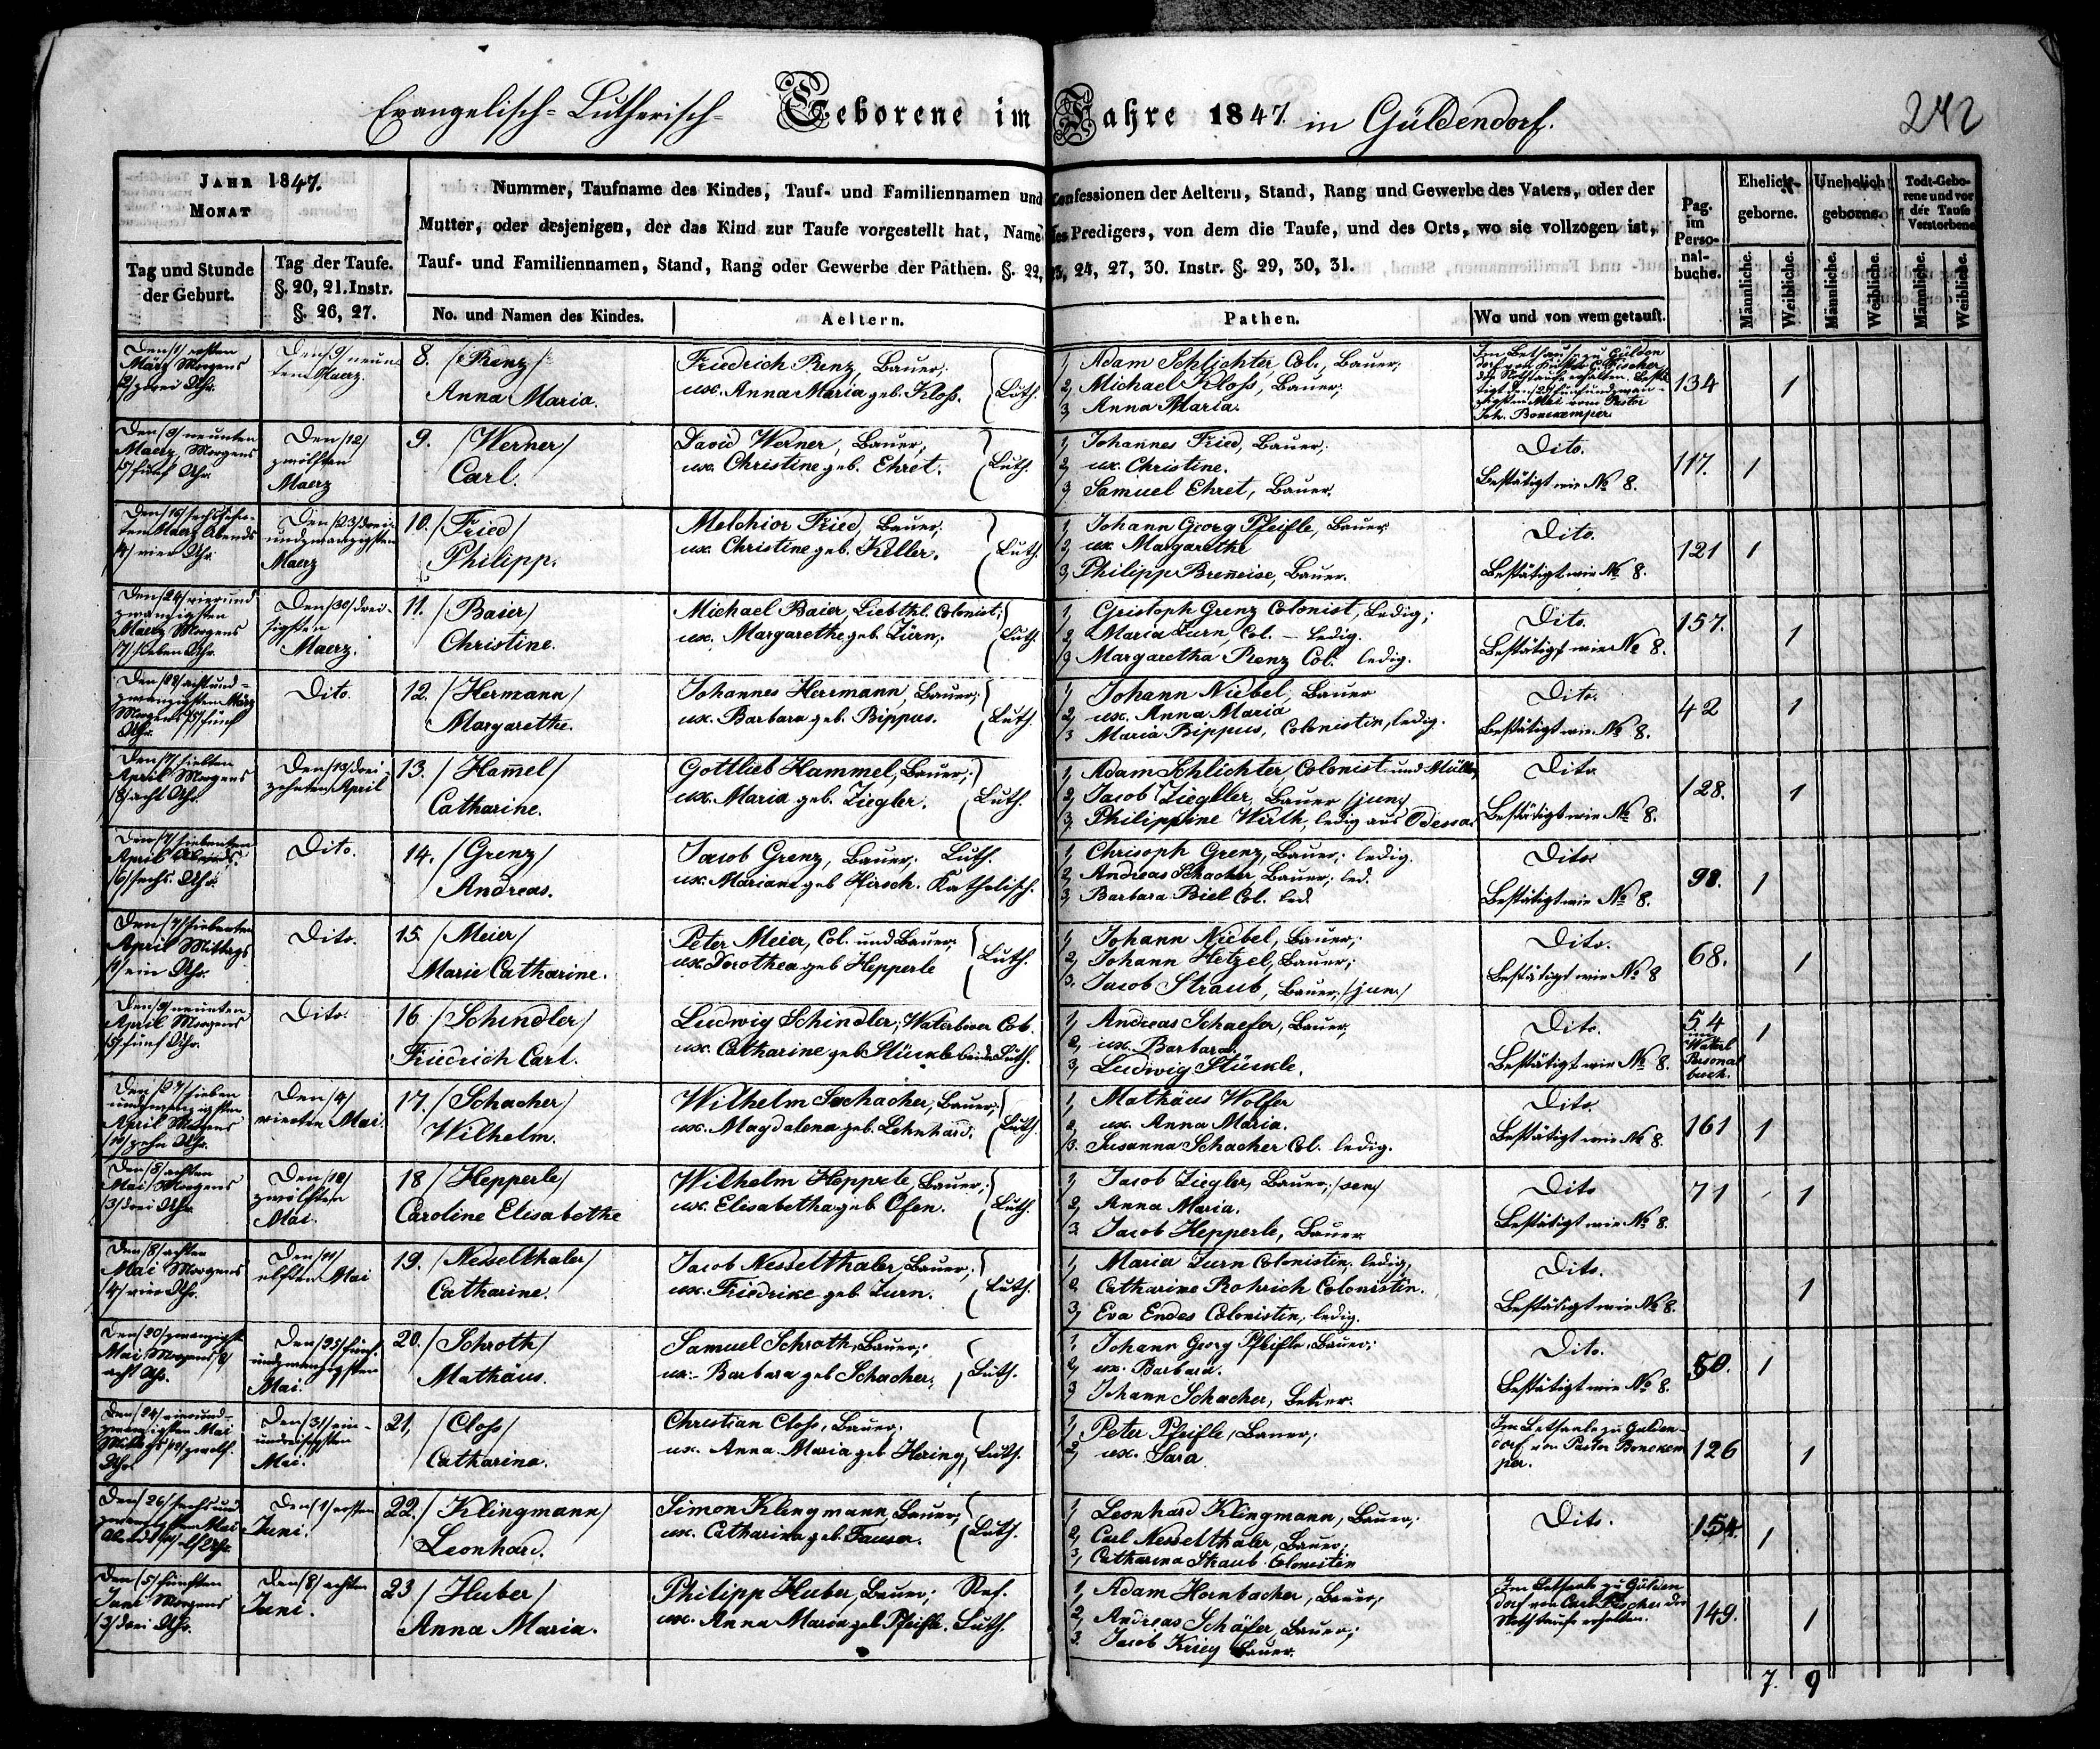 Evangelisch-Lutherisch- Geborene im Jahre 1847 in Güldendorf.
242
JAHR 1847.
MONAT
Tag und Stunde
der Geburt.
Tag der Taufe.
§. 20, 21. Instr.
§. 26, 27.
Nummer, Taufname des Kindes, Tauf- und Familiennamen und Confessionen der Aeltern, Stand, Rang und Gewerbe des Vaters, oder der
Mutter, oder desjenigen, der das Kind zur Taufe vorgestellt hat, Name des Predigers, von dem die Taufe, und des Orts, wo sie vollzogen ist,
Tauf- und Familiennamen, Stand, Rang oder Gewerbe der Pathen. §. 22, 23, 24, 27, 30. Instr. §. 29, 30, 31.
No. und Namen des Kindes.
Aeltern.
Pathen.
Wo und von wem getauft.
Pag.
im
Perso-
nal-
buche.
Ehelich-
geborne.
Unehelich
geborne.
Todt-Gebo-
rene und vor
der Taufe
Verstorbene
Männliche.
Weibliche.
Männliche.
Weibliche.
Männliche.
Weibliche.
Den /1/ ersten
März Morgens
/2/ zwei Uhr.
Den /9/ neun
ten Maerz.
8. /Renz/
Anna Maria.
Friedrich Renz, Bauer;
ux. Anna Maria geb. Kloß.
Luth.
1, Adam Schlichter Col., Bauer;
2, Michael Kloß, Bauer;
3, Anna Maria.
Im Bethause zu Gülden
dorf von Küster C. Fischer
die Nothtaufe erhalten. Bestä
tigt den /25/ fünfundzwan-
zigsten Mai vom Pastor
Joh. Bonekemper.
134
1
Den /9/ neunten
Maerz, Morgens
/5/ fünf Uhr.
Den /12/
zwölften
Maerz
9. /Werner/
Carl.
David Werner, Bauer;
ux. Christine geb. Ehret.
Luth.
1, Johannes Fried, Bauer;
2, ux. Christine.
3, Samuel Ehret, Bauer.
Dito.
Bestätigt wie No 8.
117.
1
Den /16/ sechszehn-
ten Maerz Abends
/4/ vier Uhr.
Den /23/ drei-
undzwanzigsten
Maerz
10. /Fried/
Philipp.
Melchior Fried, Bauer;
ux. Christine geb. Keller.
Luth.
1, Johann Georg Pfeifle, Bauer;
2, ux. Margarethe
3, Philipp Breneise, Bauer.
Dito.
Bestätigt wie No 8.
121
1
Den /24/ vierund
zwanzigsten
Maerz Morgens
/7/ sieben Uhr.
Den /30/ drei-
sigsten
Maerz.
11. /Baier/
Christine.
Michael Baier, Liebthl. Colonist;
ux. Margarethe geb. Zürn;
Luth.
1, Gristoph Grenz Colonist, Ledig;
2, Maria Zurn, Col. – Ledig.
3, Margaretha Renz Col. ledig.
Dito.
Bestätigt wie No 8.
157.
1
Den /28/ achtund-
zwanzigsten März
Morgens /5/ fünf
Uhr.
Dito.
12. /Hermann/
Margarethe.
Johannes Herrmann, Bauer;
ux. Barbara geb. Bippus.
Luth.
1, Johann Niebel, Bauer
2, ux. Anna Maria
3 Maria Bippus, Colonistin, ledig.
Dito.
Bestätigt wie No 8.
42
1
Den /7/ siebten
April Morgens
/8/ acht Uhr.
Den /13/ drei
zehnten April
13. /Hamel/
Catharine.
Gottlieb Hammel, Bauer;
ux. Maria geb. Ziegler.
Luth.
1, Adam Schlichter, Colonist und Müller,
2, Jacob Ziegller, Bauer /jun/
3, Philippine Wirth, ledig aus Odessa.
Dito
Bestätigt wie No 8.
128.
1
Den /7/ siebenten
April Abends
/6/ sechs Uhr.
Dito.
14. /Grenz/
Andreas.
Jacob Grenz, Bauer; Luth.
ux. Mariane geb Hirsch. Katholisch.
1, Chrisoph Grenz, Bauer; ledig.
2, Andreas Schacher Bauer; led.
3, Barbara Biel Col. led.
Dito
Bestätigt wie No 8.
98.
1
Den /7/ siebenten
April Mittags
/1/ ein Uhr.
Dito.
15. /Meier/
Marie Catharine.
Peter Meier, Col. und Bauer;
ux Dorothea geb Hepperle
Luth.
1, Johann Niebel, Bauer;
2, Johann Hetzel, Bauer;
3. Jacob Straub, Bauer; /jun./
Dito.
Bestätigt wie No 8
68.
1
Den /9/ neunten
April Morgens
/5/ fünf Uhr.
Dito.
16. /Schindler/
Friedrich Carl.
Ludwig Schindler; Waterloer Col.
ux. Catharine geb Stückle beide Luth.
1, Andreas Schaefer, Bauer;
2, ux. Barbara.
3, Ludwig Stückle.
Dito.
Bestätigt wie No 8.
54
im
Waterl
Personal
buch.
1
Den /27/ sieben
undzwanzigsten
April Morgens
/10/ zehn Uhr.
Den /4/
vierten Mai.
17. /Schacher/
Wilhelm.
Wilhelm Schacher, Bauer;
ux. Magdalena geb. Lehnhard.
Luth.
1, Mathäus Wolfer
2, ux. Anna Maria.
3. Susanna Schacher Col. ledig.
Dito.
Bestätigt wie No 8.
161
1
Den /8/ achten
Mai Morgens
/3/ drei Uhr.
Den /12/
zwölften
Mai.
18 /Hepperle/
Caroline Elisabethe
Wilhelm Hepperle, Bauer;
ux. Elisabetha geb Ofen.
Luth.
1, Jacob Ziegler, Bauer; /sen/
2, Anna Maria.
3 Jacob Hepperle, Bauer
Dito
Bestätigt wie No 8.
71
1
Den /8/ achten
Mai Morgens
/4/ vier Uhr.
Den /11/
elften Mai
19. /Nesselthaler/
Catharine.
Jacob Nesselthaler, Bauer;
ux. Friedrike geb Zurn.
Luth.
1, Maria Zurn Colonistin, ledig,
2, Catharine Rohrich Colonistin.
3, Eva Endes Colonistin, ledig.
Dito.
Bestätigt wie No 8.
1
Den /20/ zwanzigst
Mai Morgens /8/
acht Uhr.
Den /25/ fünf
undzwanzigsten
Mai.
20. /Schroth/
Mathäus.
Samuel Schroth, Bauer;
ux. Barbara geb Schacher;
Luth.
1, Johann Georg Pfeifle, Bauer;
2, ux. Barbara.
3, Johann Schacher, Bauer.
Dito.
Bestätigt wie No 8.
50.
1
Den /24/ vierund-
zwanzigsten Mai
Mittags /12/ zwolf
Uhr.
Den /31/ ein-
unddreisigsten
Mai.
21, /Closs/
Catharina.
Christian Closs, Bauer;
ux. Anna Maria geb Hering,
Luth.
1, Peter Pfeifle, Bauer;
2, ux. Sara
Im Bethause zu Gulden-
dorf von Pastor Bonekem
per.
126
1
Den /26/ sechsund
zwanzigsten Mai
Abends /11/ elf Uhr.
Den /1/ ersten
Juni.
22. /Klingmann/
Leonhard.
Simon Klingmann, Bauer;
ux. Catharina geb. Fauser.
Luth.
1, Leonhard Klingmann, Bauer;
2, Carl Nesselthaler, Bauer;
3, Catharina Straub. Colonistin
Dito.
154.
1
Den /5/ fünften
Juni Morgens
/3/ drei Uhr.
Den /8/ achten
Juni.
23 /Huber/
Anna Maria.
Philipp Huber, Bauer; Ref.
ux. Anna Maria geb Pfeifle. Luth.
1, Adam Hornbacher, Bauer;
2, Andreas Schäfer, Bauer;
3. Jacob Krieg Bauer.
Im Bethause zu Gülden
dorf von Carl Fischer die
Nothtaufe erhalten.
149.
1
7. 9